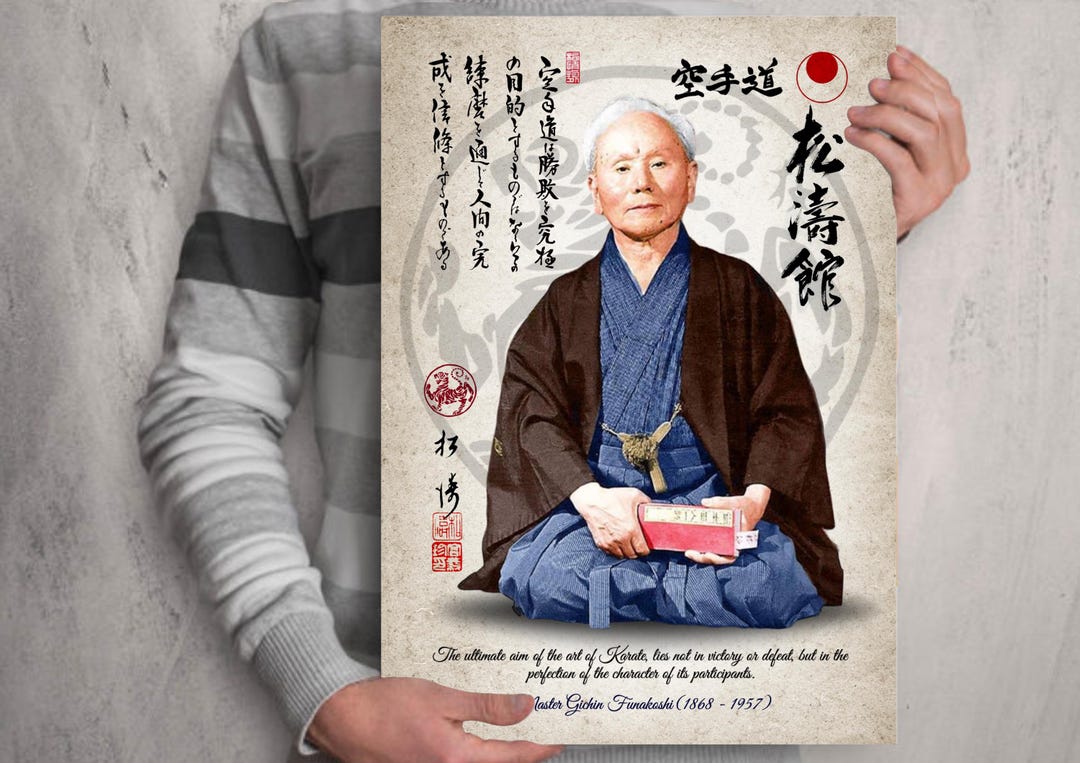 空手道
松濤館
空手道は勝敗を究極
の目的とするものでは
練磨を通じて人間の完
成を信條とするものである
松濤
The ultimate aim of the art of Karate, lies not in victory or defeat, but in the
perfection of the character of its participants.
Master Gichin Funakoshi (1868 - 1957)